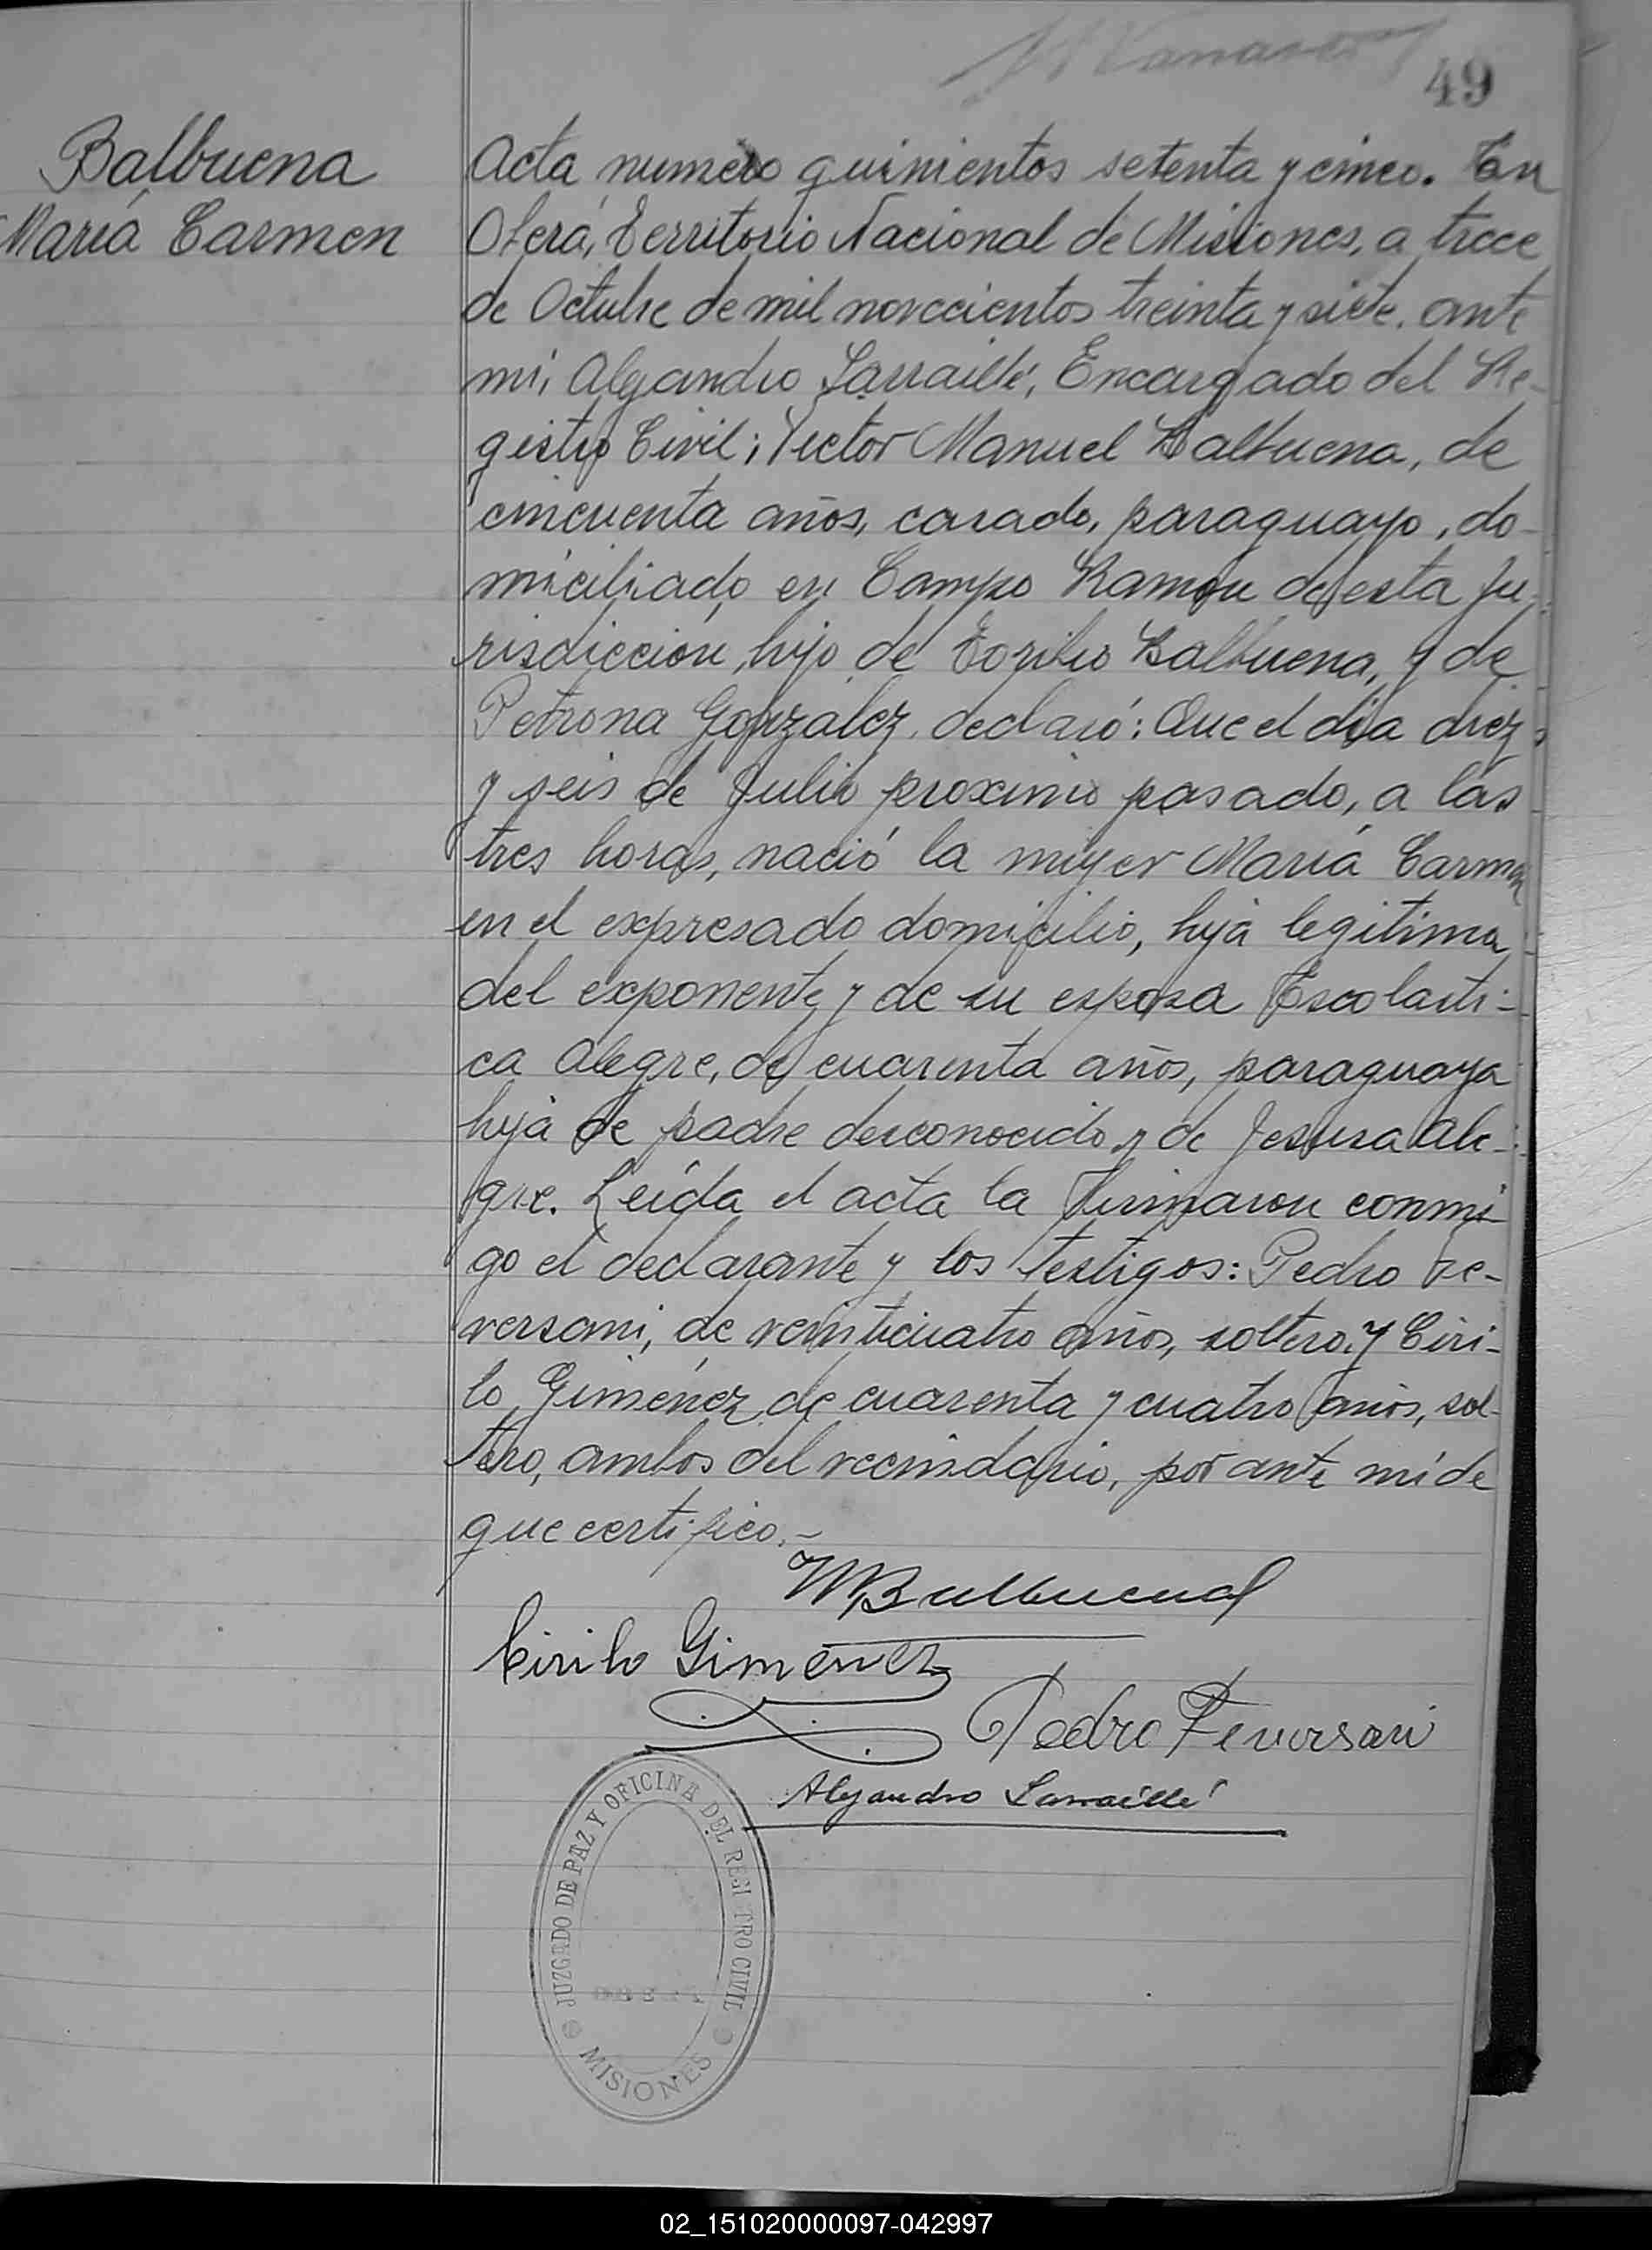 49
Balbuena
María Carmen
Acta numero quinientos setenta y cinco. En
Oberá, Territorio Nacional de Misiones, a trece
de Octubre de mil novecientos treinta y siete. ante
mi, Alejandro Larraillé, Encargado del Re-
gistro Civil; Victor Manuel Balbuena, de
cincuenta años, casado, paraguayo, do-
miciliado en Campo Ramon de esta Ju-
risdiccion, hijo de Toribio Balbuena, y de
Petrona González, declaró: Que el día diez
y seis de Julio proximo pasado, a las
tres horas, nació la mujer María Carmen
en el expresado domicilio, hija legitima
del exponente y de su esposa Escolasti-
ca Alegre, de cuarenta años, paraguaya
hija de padre desconocido y de Jesusa Ale-
gre. Leída el acta la firmaron conmi-
go el declarante y los testigos: Pedro Fe-
versani, de veinticuatro años, soltero. Y Ciri-
lo Giménez de cuarenta y cuatro años, sol-
tero, ambos del vecindario, por ante mí de
que certifico.-
Balbuena
Cirilo Gimenez
Pedro Feversani
Alejandro Larraillé
JUZGADO DE PAZ Y OFICINA DEL REGISTRO CIVIL
MISIONES
02_151020000097-042997